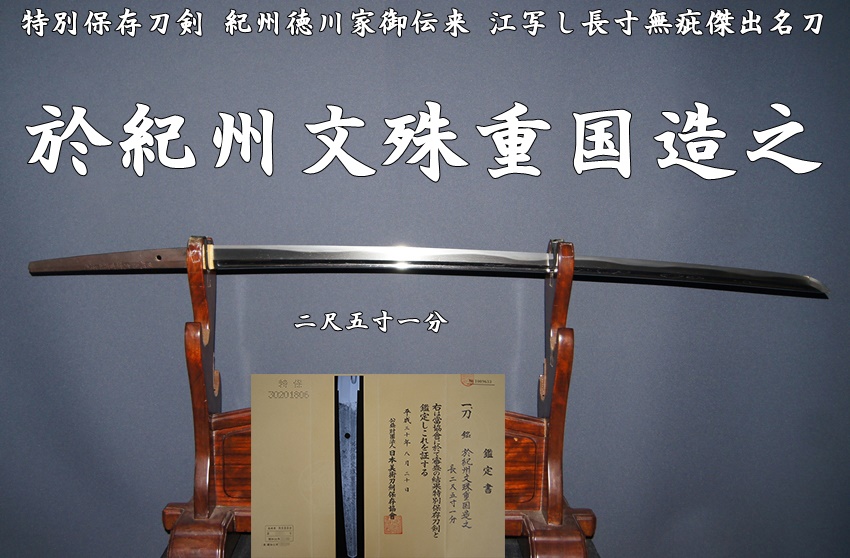 特別保存刀剣 紀州徳川家御伝来 江写し長寸無疵傑出名刀
於紀州文殊重国造之
二尺五寸一分
特保
30201806
鑑定書
一、刀 銘 於紀州文殊重国造之
長二尺五寸一分
右は当協会に於て審査の結果特別保存刀剣と
鑑定しこれを証する
平成三十年八月二十日
公益財団法人日本美術刀剣保存協会